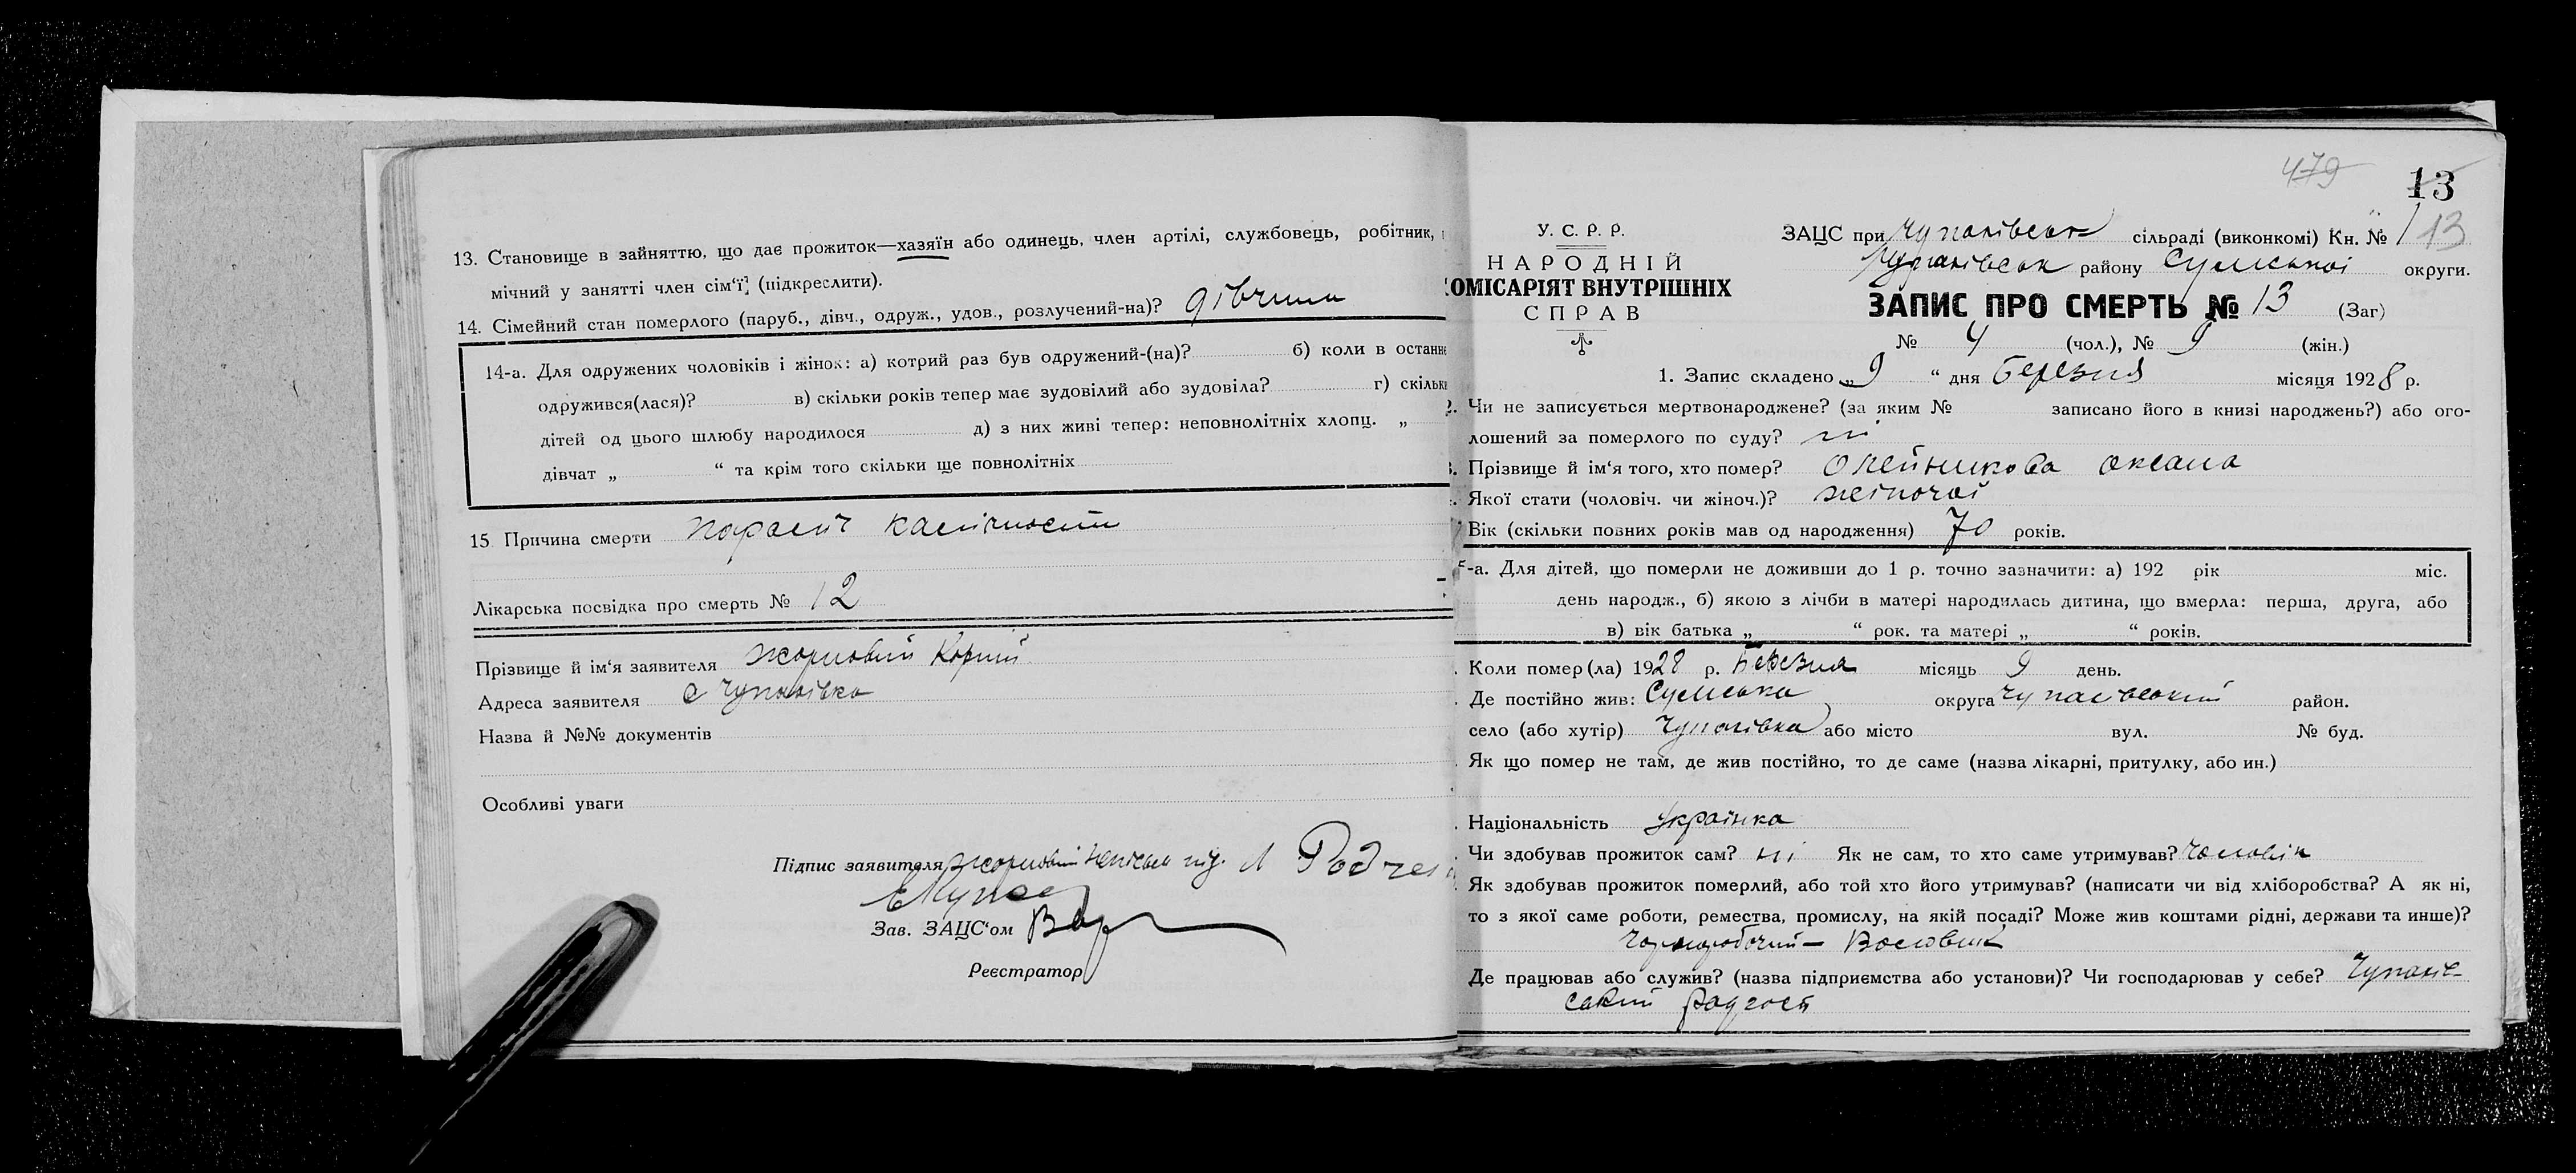 13. Становище в зайняттю, що дає прожиток—хазяїн або одинець, член артілі, службовець, робітник,
мічний у занятті член сім‘ї (підкреслити).
14. Сімейний стан померлого (паруб., дівч., одруж., удов., розлучений-на)? дівчина
14-а. Для одружених чоловіків і жінок: а) котрий раз був одружений-(на)? б) коли в останнє
одружився(лася)? в) скільки років тепер має зудовілий або зудовіла? г) скільки
дітей од цього шлюбу народилося д) з них живі тепер: неповнолітніх хлопц. „
дівчат „ “ та крім того скільки ще повнолітніх
15 Причина смерти
Лікарська посвідка про смерть № 12
Прізвище й ім‘я заявителя Жорновий Корній
Адреса заявителя с Чупахівка
Назва й №№ документів
Особливі уваги
Підпис заявителя Жорновий
Зав. ЗАЦС‘ом
Реєстратор
479
13
У. С. Р. Р.
НАРОДНІЙ
КОМІСАРІЯТ ВНУТРІШНІХ
СПРАВ
ЗАЦС при сільраді (виконкомі) Кн. № 1 13
району Сумської округи.
ЗАПИС ПРО СМЕРТЬ № 13 (Заг)
№ 4 (чол.), № 9 (жін.)
1. Запис складено „9 “ дня березня місяця 1928 р.
2. Чи не записується мертвонароджене? (за яким № записано його в книзі народжень?) або ого-
лошений за померлого по суду? ні
Прізвище й ім‘я того, хто помер? Олейникова Оксана
Якої стати (чоловіч. чи жіноч.)? жіночої
Вік (скільки повних років мав од народження) 70 років.
5-а. Для дітей, що померли не доживши до 1 р. точно зазначити: а) 192 рік міс.
день народж., б) якою з лічби в матері народилась дитина, що вмерла: перша, друга, або
в) вік батька „ “ рок. та матері „ “ років.
Коли помер(ла) 1928 р. Березня місяць 9 день.
Де постійно жив: Сумська округа Чупахівський район.
село (або хутір) Чупахівка або місто вул. № буд.
Як що помер не там, де жив постійно, то де саме (назва лікарні, притулку, або ин.)
Національність Українка
Чи здобував прожиток сам? ні Як не сам, то хто саме утримував? Чоловік
Як здобував прожиток померлий, або той хто його утримував? (написати чи від хліборобства? А як ні,
то з якої саме роботи, ремества, промислу, на якій посаді? Може жив коштами рідні, держави та инше)?
Чорноробочий —
Де працював або служив? (назва підприємства або установи)? Чи господарював у себе? Чупахів-
ський радгосп